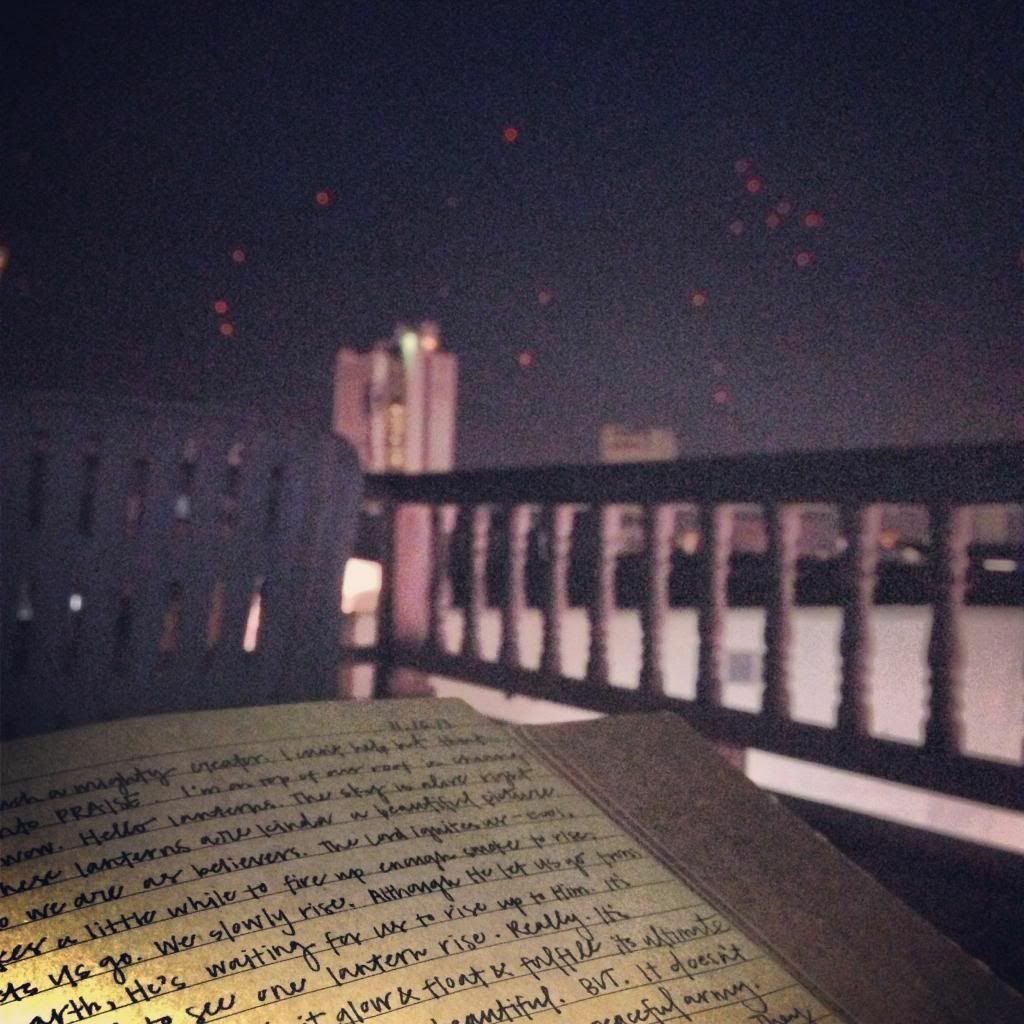 11.16.13
such a mighty creator. I can't help but
into PRAISE. I'm on top of our roof in
now. Hello lanterns. The sky is alive right
These lanterns are kinda a beautiful picture
who we are as believers. The Lord ignites us -
a little while to fire up enough smoke to rise.
lets us go. We slowly rise. Although He let us go from
earth, He's waiting for us to rise up to Him. It's
to see one lantern rise. Really. It's
it glow & float & fulfill its ultimate
beautiful. BUT. It doesn't
peaceful army.
They